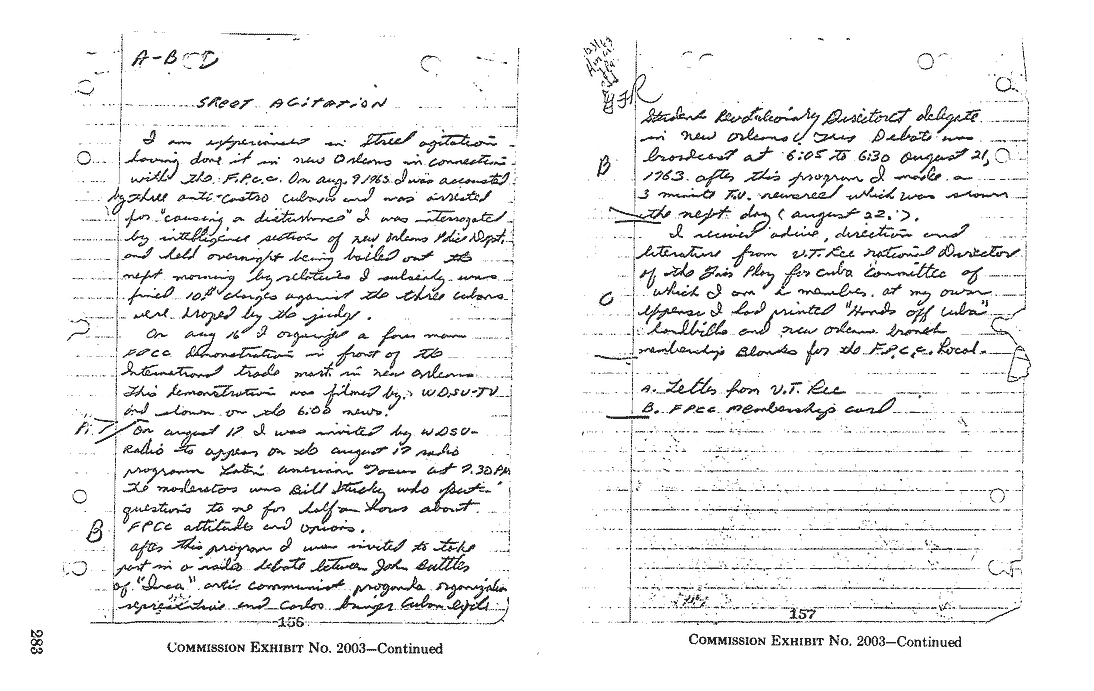 A-B C D
SREET AGITATION
I am experienced in Street agitation
having done it in new Orleans in connection
with the F.P.C.C. On aug. 9 1963 I was accousted
by three anti-castro cubans and was arrested
for "causing a disturbance" I was interrogated
by intelligence section of new Orleans Police Dept.
and held overnight being bailed out the
next morning by relatives I subsely was
fined 10.$ charges against the three cubans
were droped by the judge.
On aug 16 I organized a four man
FPCC Demonstration in front of the
International trade mart in new Orleans
this demonstration was filmed by WDSU-TV
and shown on the 6:00 news.
On august 17 I was invited by WDSU-
Radio to appear on the august 17 radio
programm Latin american Focus at 7.30 PM
the moderator was Bill Stucky who put
questions to me for half an hour about
FPCC attitudes and opions.
B
after this program I was invited to take
part in a radio debate between John Buttles
of "Inca" anti communist progonda organization
and Carlos banger Cuban
156
283
COMMISSION EXHIBIT No. 2003—Continued
Student Revolutionary Directoret delegate
in new Orleans
Debate was
B
broadcast at 6:05 to 6:30 august 21,
1963. after this program I made a
3 minute T.V. newsreel which was shown
the next day (august 22.).
I received advice, direction and
literature from V.T. Lee national Director
of the Fair Play for cuba Committee of
C
which I am a member. at my own
expense I had printed "Hands off cuba"
handbills and new orleans branch
membership Blanks for the F.P.C.C. local.
A. Letter from V.T. Lee
B. FPCC membership card
157
COMMISSION EXHIBIT No. 2003—Continued